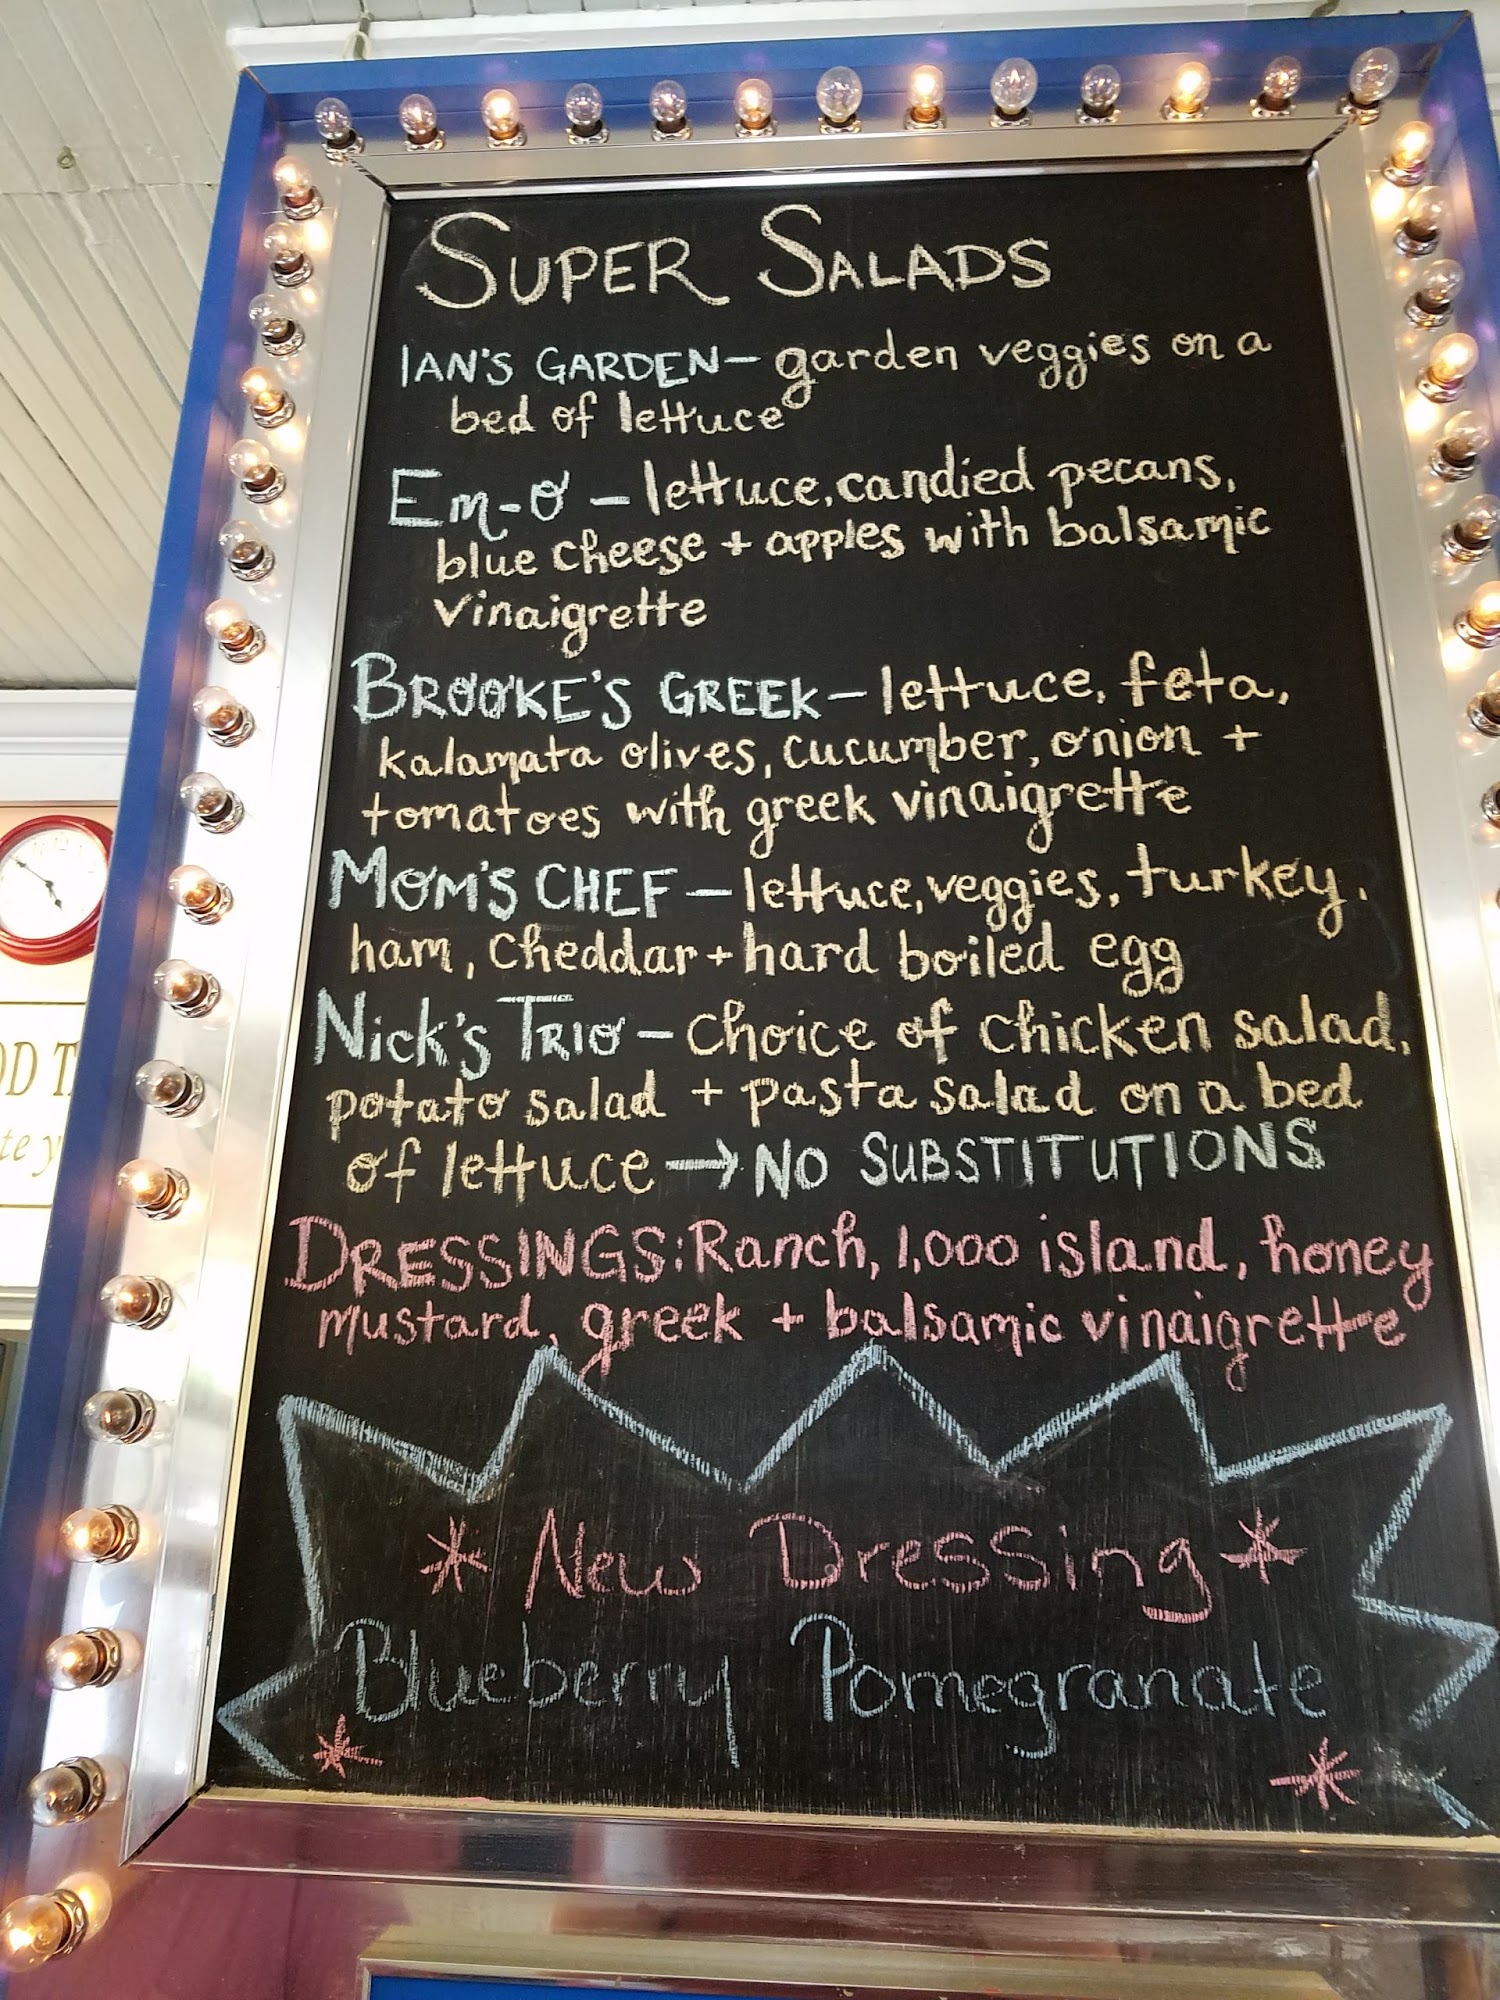 SUPER SALADS
IAN'S GARDEN - garden veggies on a
bed of lettuce
Em-O - lettuce, candied pecans,
blue cheese + apples with balsamic
vinaigrette
BROOKE'S GREEK - lettuce, feta,
kalamata olives, cucumber, onion +
tomatoes with greek vinaigrette
MOM'S CHEF - lettuce, veggies, turkey,
ham, cheddar + hard boiled egg
NICK'S TRIO - choice of chicken salad,
potato salad + pasta salad on a bed
of lettuce → NO SUBSTITUTIONS
DRESSINGS: Ranch, 1,000 island, honey
mustard, greek + balsamic vinaigrette
* New Dressing *
Blueberry Pomegranate